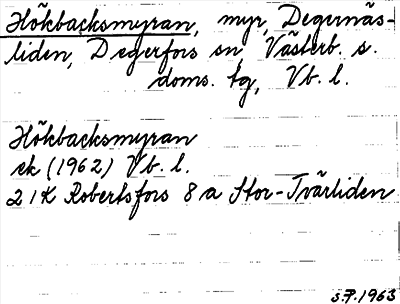 Hökbacksmyran, myr, Degernäs-
liden, Degerfors sn Västerb. s.
doms. tg, Vb. l.
Hökbacksmyran
ek (1962) Vb. l.
21K Robertsfors 8a Stor-Tvärliden
S.P. 1963